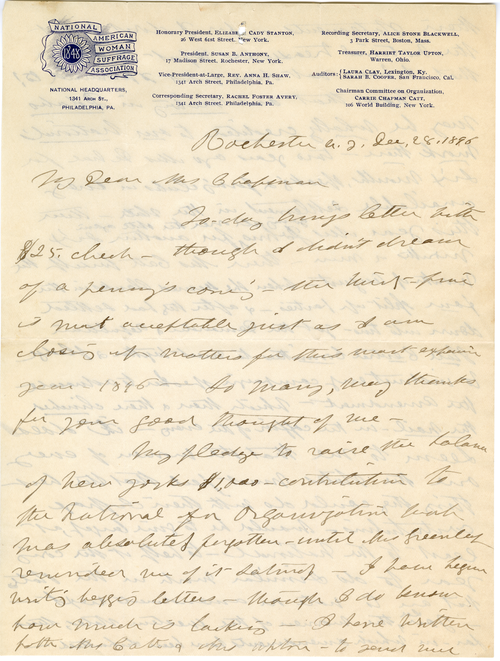 NATIONAL
AMERICAN
WOMAN
SUFFRAGE
ASSOCIATION
1848
NATIONAL HEADQUARTERS,
1341 ARCH ST.,
PHILADELPHIA, PA.
Honorary President, ELIZABETH CADY STANTON,
26 West 61st Street, New York.
President, SUSAN B. ANTHONY,
17 Madison Street, Rochester, New York.
Vice-President-at-Large, REV. ANNA H. SHAW,
1341 Arch Street, Philadelphia, Pa.
Corresponding Secretary, RACHEL FOSTER AVERY,
1341 Arch Street, Philadelphia, Pa.
Recording Secretary, ALICE STONE BLACKWELL,
3 Park Street, Boston, Mass.
Treasurer, HARRIET TAYLOR UPTON,
Warren, Ohio.
Auditors: LAURA CLAY, Lexington, Ky.
SARAH B. COOPER, San Francisco, Cal.
Chairman Committee on Organization,
CARRIE CHAPMAN CATT,
106 World Building, New York.
Rochester N. Y. Dec. 28, 1896
My Dear Mrs Chapman
To-day brings letter with
$25. check - though I didn't dream
of a penny's coming - the
is not acceptable just as I am
closing up matters for this most expensive
year 1896 - So many, many thanks
for your good thought of me -
My pledge to raise the balance
of New York's $1,000 - contribution to
the National for Organization work
was absolutely forgotten - until Mrs Greenley
reminded me of it Saturday - I have begun
writing begging letters - though I do know
how much is lacking - I have written
both Mrs Catt & Mrs Upton - to send me